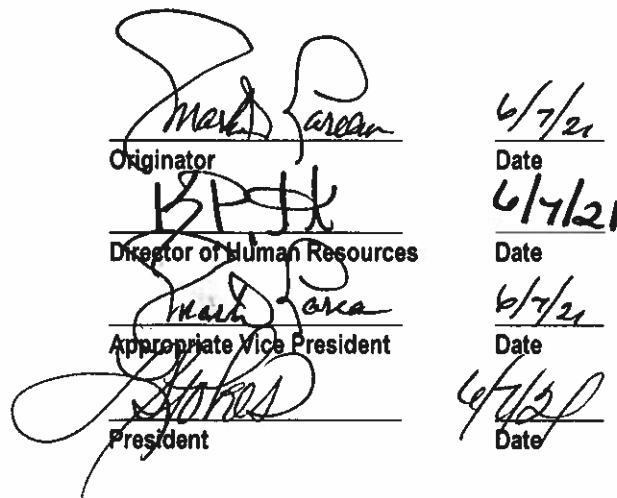 6/7/21
Originator Date
6/7/21
Director of Human Resources Date
6/7/21
Appropriate Vice President Date
Stokes 6/7/21
President Date